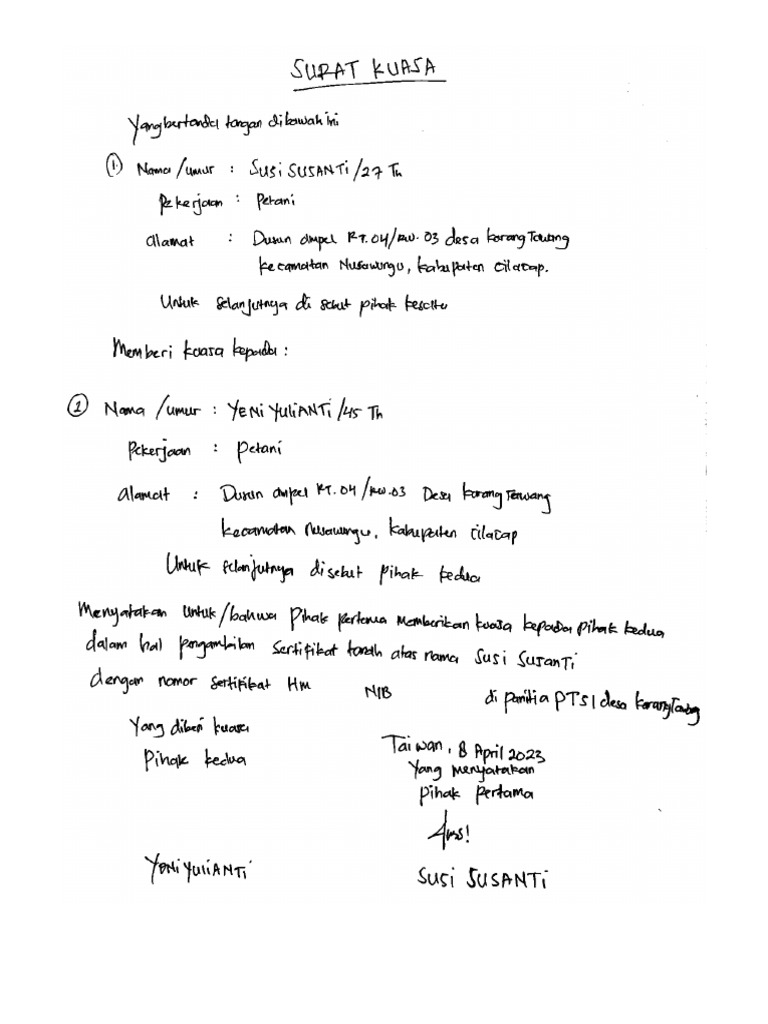 SURAT KUASA
Yang bertanda tangan dibawah ini
1. Nama/umur : SUSI SUSANTI/27 Th
Pekerjaan : Petani
alamat : Dusun ampel RT.04/RW.03 desa karang Tawang
kecamatan Nusawungu, kabupaten cilacap.
Untuk selanjutnya di sebut pihak kesatu
Memberi kuasa kepada :
2 Nama /umur : YENI YULIANTI/45 Th
Pekerjaan : petani
alamat : Dusun ampel RT.04/RW.03 Desa karang Tawang
kecamatan Nusawungu, kabupaten cilacap
Untuk selanjutnya disebut pihak kedua
Menyatakan untuk/bahwa pihak pertama memberikan kuasa kepada pihak kedua
dalam hal pengambilan sertifikat tanah atas nama SUSI SUSANTI
dengan nomor sertifikat Hm NIB di panitia PTSl desa karang Tawang
Yang diberi kuasa
Pihak kedua
Taiwan, 8 April 2023
Yang menyatakan
pihak pertama
YENI YULIANTI
SUSI SUSANTI